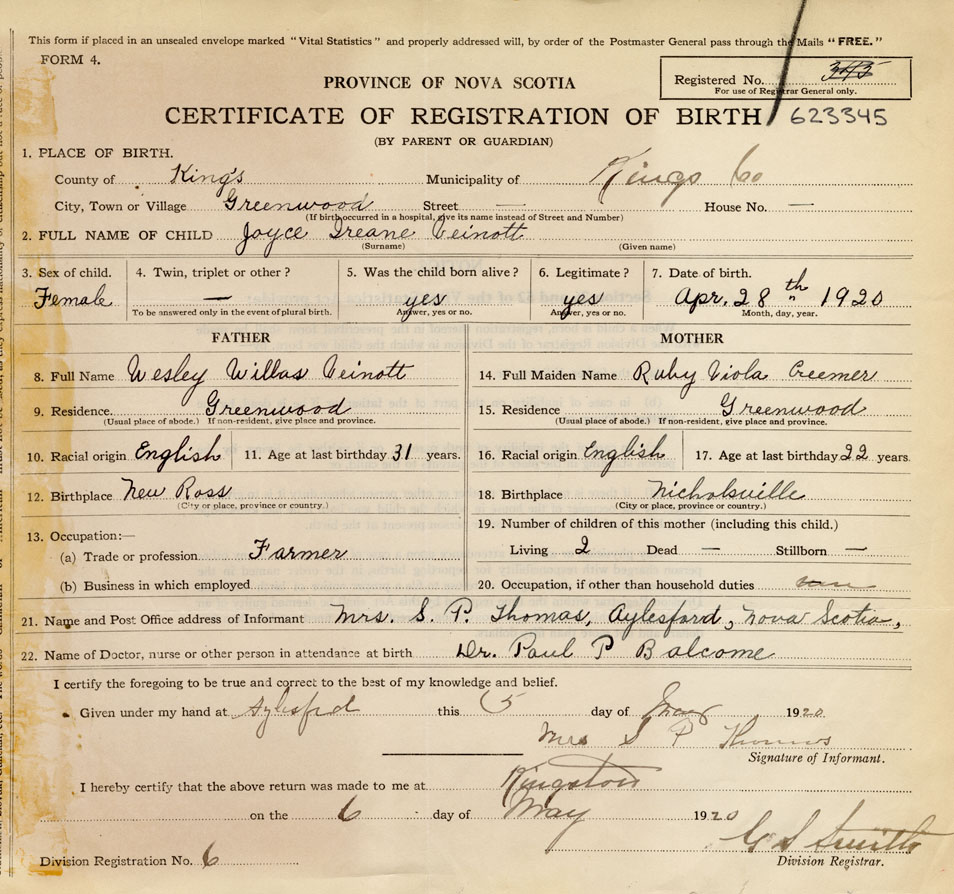 This form if placed in an unsealed envelope marked "Vital Statistics" and properly addressed will, by order of the Postmaster General pass through the Mails "FREE."
FORM 4.
Registered No. 345
For use of Registrar General only.
PROVINCE OF NOVA SCOTIA
CERTIFICATE OF REGISTRATION OF BIRTH 623345
(BY PARENT OR GUARDIAN)
1. PLACE OF BIRTH.
County of King's Municipality of Kings Co
City, Town or Village Greenwood Street — House No. —
(If birth occurred in a hospital, give its name instead of Street and Number)
2. FULL NAME OF CHILD Joyce Ireane Veinott
(Surname) (Given name)
3. Sex of child. 4. Twin, triplet or other? 5. Was the child born alive? 6. Legitimate? 7. Date of birth.
Female — yes yes Apr. 28th 1920
To be answered only in the event of plural birth. Answer, yes or no. Answer, yes or no. Month, day, year.
FATHER MOTHER
8. Full Name Wesley Willas Veinott 14. Full Maiden Name Ruby Viola Creemer
9. Residence. Greenwood 15. Residence Greenwood
(Usual place of abode.) If non-resident, give place and province. (Usual place of abode.) If non-resident, give place and province.
10. Racial origin English 11. Age at last birthday 31 years. 16. Racial origin English 17. Age at last birthday 22 years.
12. Birthplace New Ross 18. Birthplace Nicholsville
(City or place, province or country.) (City or place, province or country.)
13. Occupation:— 19. Number of children of this mother (including this child.)
(a) Trade or profession Farmer Living 2 Dead — Stillborn —
(b) Business in which employed 20. Occupation, if other than household duties
21. Name and Post Office address of Informant Mrs. S. P. Thomas, Aylesford, Nova Scotia,
22. Name of Doctor, nurse or other person in attendance at birth Dr. Paul P Balcome
I certify the foregoing to be true and correct to the best of my knowledge and belief.
Given under my hand at Aylesford this 5 day of May 1920
Mrs S P Thomas
Signature of Informant.
I hereby certify that the above return was made to me at Kingston
on the 6 day of May 1920
G S Smith
Division Registration No. 6 Division Registrar.